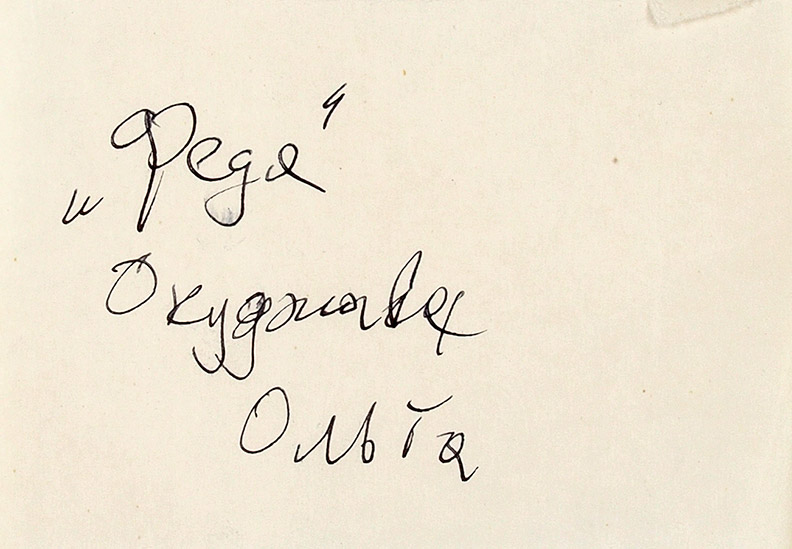 „Федя“
Окуджава
Ольга